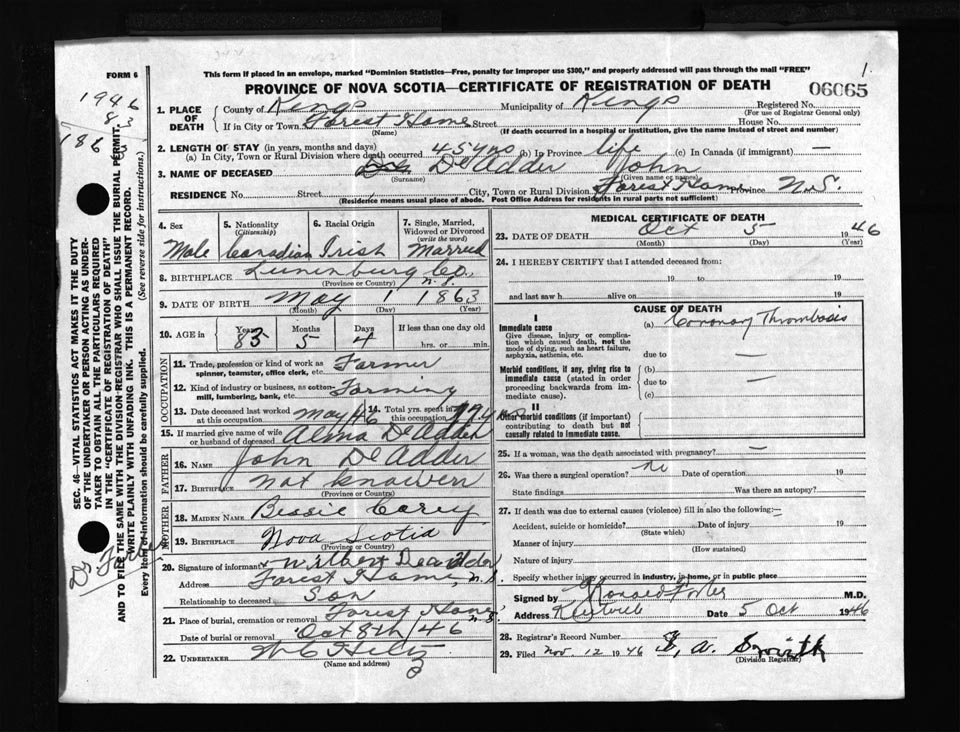 FORM 6
This form if placed in an envelope, marked "Dominion Statistics—Free, penalty for improper use $300," and properly addressed will pass through the mail "FREE"
1.
PROVINCE OF NOVA SCOTIA—CERTIFICATE OF REGISTRATION OF DEATH
06065
1. PLACE OF DEATH
County of Kings Municipality of Kings Registered No.
(For use of Registrar General only)
If in City or Town Forest Home Street House No.
(Name) (If death occurred in a hospital or institution, give the name instead of street and number)
2. LENGTH OF STAY (in years, months and days)
(a) In City, Town or Rural Division where death occurred 45 yrs (b) In Province life (c) In Canada (if immigrant) —
3. NAME OF DECEASED De Adder John
(Surname) (Given name or names)
RESIDENCE No. Street City, Town or Rural Division Forest Home Province N.S.
(Residence means usual place of abode. Post Office Address for residents in rural parts not sufficient)
4. Sex Male
5. Nationality (Citizenship) Canadian
6. Racial Origin Irish
7. Single, Married, Widowed or Divorced (write the word) Married
8. BIRTHPLACE Lunenburg Co. N.S.
(Province or Country)
9. DATE OF BIRTH May 1 1863
(Month) (Day) (Year)
10. AGE in Years 83 Months 5 Days 4 If less than one day old
hrs. or min.
OCCUPATION
11. Trade, profession or kind of work as spinner, teamster, office clerk, etc. Farmer
12. Kind of industry or business, as cotton-mill, lumbering, bank, etc. Farming
13. Date deceased last worked at this occupation May 46
14. Total yrs. spent in this occupation
15. If married give name of wife or husband of deceased Alma De Adder
FATHER
16. NAME John De Adder
17. BIRTHPLACE not known
(Province or Country)
MOTHER
18. MAIDEN NAME Bessie Carey
19. BIRTHPLACE Nova Scotia
(Province or Country)
20. Signature of informant Wilbert Deadder
Address Forest Home, N.S.
Relationship to deceased Son
21. Place of burial, cremation or removal Forest Home N.S.
Date of burial or removal Oct 8th/46
22. UNDERTAKER W C Hiltz
(Name and address)
MEDICAL CERTIFICATE OF DEATH
23. DATE OF DEATH Oct 5 1946
(Month) (Day) (Year)
24. I HEREBY CERTIFY that I attended deceased from:
19 to 19
and last saw h alive on 19
CAUSE OF DEATH
I
Immediate cause
Give disease, injury or complication which caused death, not the mode of dying, such as heart failure, asphyxia, asthenia, etc.
(a) Coronary Thrombosis
due to —
Morbid conditions, if any, giving rise to immediate cause (stated in order proceeding backwards from immediate cause).
(b)
due to —
(c)
II
Other morbid conditions (if important) contributing to death but not causally related to immediate cause.
25. If a woman, was the death associated with pregnancy? —
26. Was there a surgical operation? no Date of operation 19
State findings Was there an autopsy?
27. If death was due to external causes (violence) fill in also the following:—
Accident, suicide or homicide? Date of injury 19
(State which)
Manner of injury
(How sustained)
Nature of injury
Specify whether injury occurred in industry, in home, or in public place
Signed by Ronald Forbes M.D.
Address Date 5 Oct 1946
28. Registrar's Record Number
29. Filed Nov. 12 1946 A. Smith
(Division Registrar)
1946
83
1863
SEC. 46—VITAL STATISTICS ACT MAKES IT THE DUTY
OF THE UNDERTAKER OR PERSON ACTING AS UNDERTAKER
TO OBTAIN ALL THE PARTICULARS REQUIRED
IN THE "CERTIFICATE OF REGISTRATION OF DEATH"
AND TO FILE THE SAME WITH THE DIVISION REGISTRAR WHO SHALL ISSUE THE BURIAL PERMIT.
WRITE PLAINLY WITH UNFADING INK. THIS IS A PERMANENT RECORD.
Every item of information should be carefully supplied. (See reverse side for instructions.)